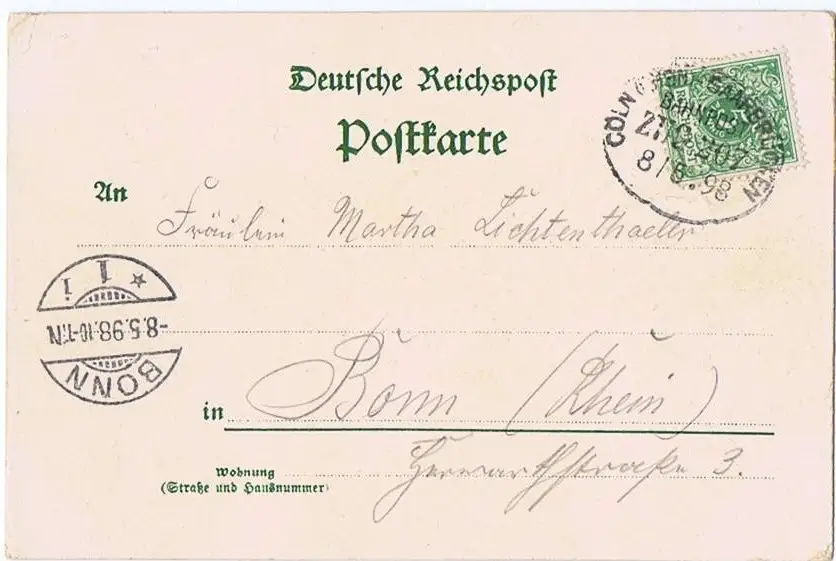 Deutsche Reichspost
Postkarte
CÖLN SAARBRÜCKEN
BAHNPOST
ZUG 207
8/5.98
An Fräulein Martha Lichtenthaeler
1 i
-8.5.98.10-11.N
BONN
in Bonn (Rhein)
Wohnung
(Straße und Hausnummer)
Herwarthstraße 3.